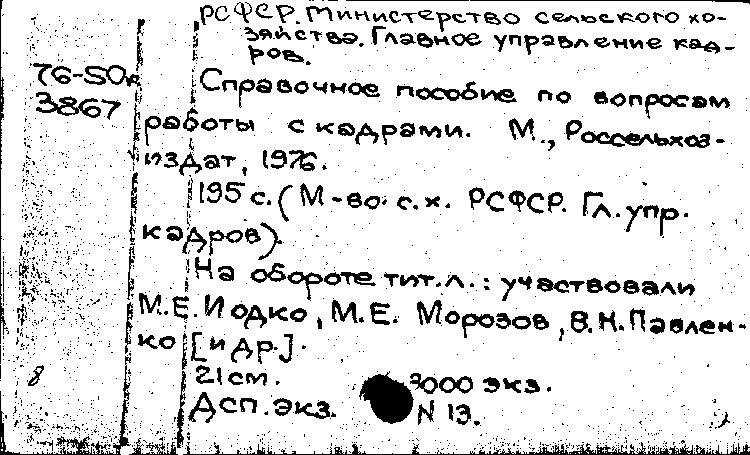 РСФСР. Министерство сельского хо-
зяйства. Главное управление кад-
ров.
76-50к
3867
Справочное пособие по вопросам
работы с кадрами. М., Россельхоз-
издат, 1976.
195 с. (М-во с.х. РСФСР. Гл. упр.
кадров).
На обороте тит.л.: участвовали
М.Е. Иодко, М.Е. Морозов, В.Н. Павлен-
ко [и др.].
8
21 см. 3000 экз.
Дсп. экз. N 13.